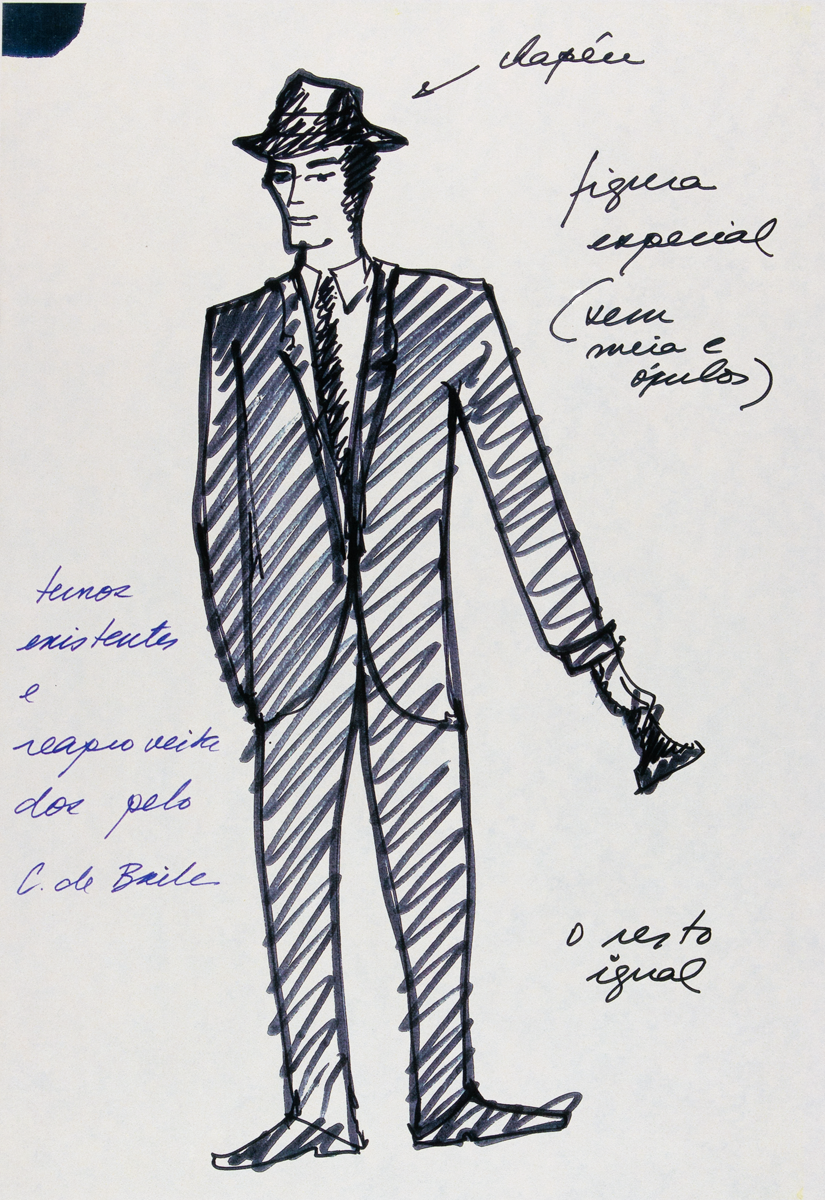 chapéu
figura
especial
(sem
meia e
óculos)
ternos
existentes
e
reaproveita
dos pelo
C. de Baile
o resto
igual